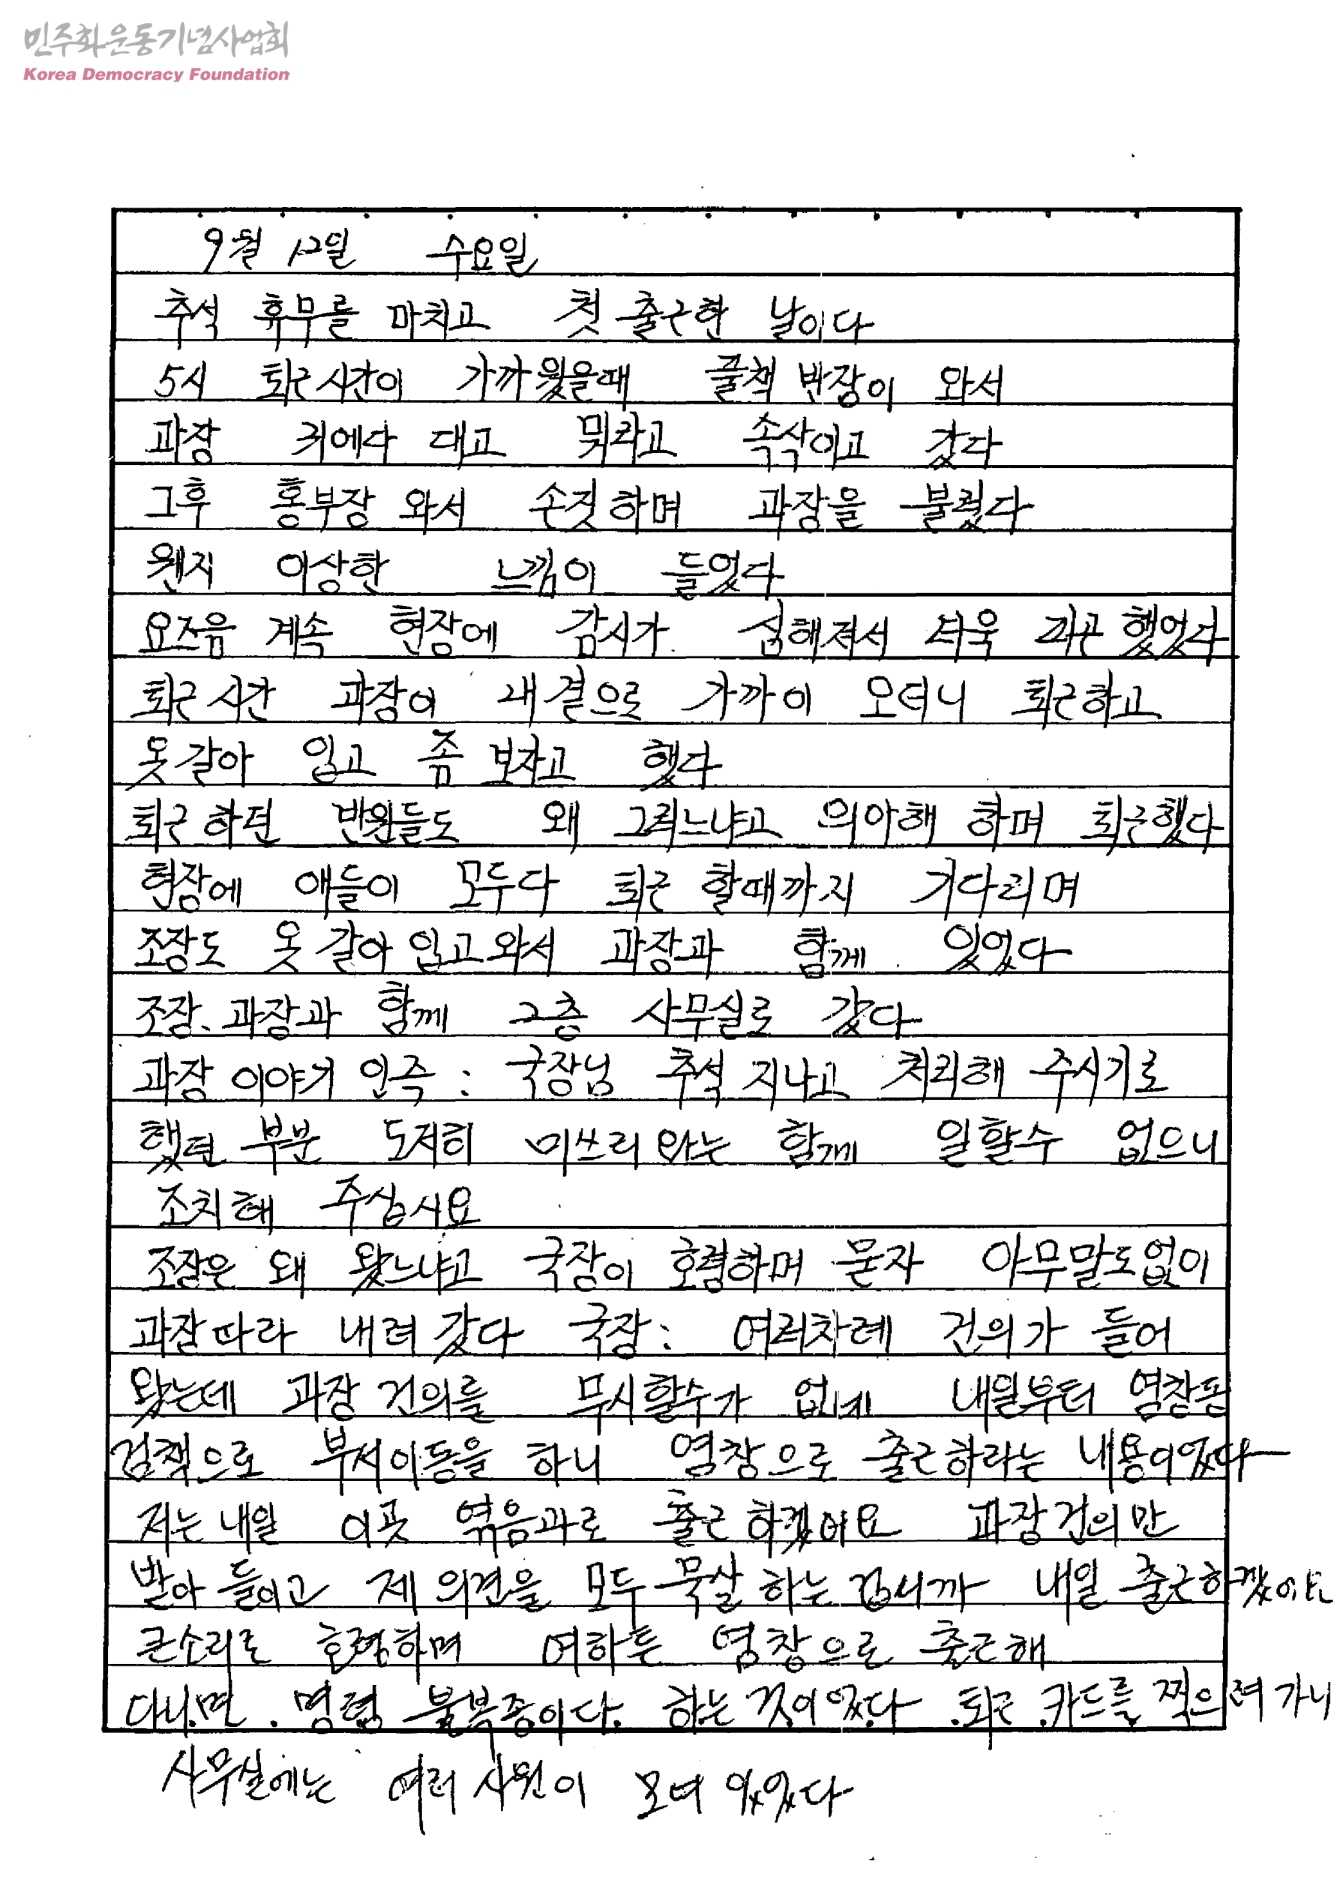 민주화운동기념사업회
Korea Democracy Foundation
9월 12일 수요일
추석 휴무를 마치고 첫 출근한 날이다
5시 퇴근시간이 가까웠을때 풀책 반장이 와서
과장 귀에다 대고 뭐라고 속삭이고 갔다
그후 홍부장 와서 손짓하며 과장을 불렀다
웬지 이상한 느낌이 들었다
요즈음 계속 현장에 감시가 심해져서 더욱 피곤했었다
퇴근시간 과장이 내곁으로 가까이 오더니 퇴근하고
옷갈아 입고 좀 보자고 했다
퇴근하던 반원들도 왜 그러느냐고 의아해 하며 퇴근했다
현장에 애들이 모두다 퇴근 할때까지 기다리며
조장도 옷 갈아 입고와서 과장과 함께 있었다
조장、과장과 함께 2층 사무실로 갔다
과장 이야기 인즉 : 국장님 추석 지나고 처리해 주시기로
했던 부분 도저히 미쓰리 와는 함께 일할수 없으니
조치해 주십시요
조장은 왜 왔느냐고 국장이 호령하며 묻자 아무말도없이
과장따라 내려갔다 국장: 여러차례 건의가 들어
왔는데 과장건의를 무시할수가 없네 내일부터 염창동
검책으로 부서이동을 하니 염창으로 출근하라는 내용이었다
저는 내일 이곳 엮음과로 출근하겠어요 과장건의만
받아 들이고 제 의견을 모두 묵살 하는 겁니까 내일 출근하겠어요
큰소리로 호령하며 여하튼 염창으로 출근해
다니면. 명령 불복종이다. 하는 것이었다 .퇴근 카드를 찍으려 가니
사무실에는 여러 사원이 모여 있었다